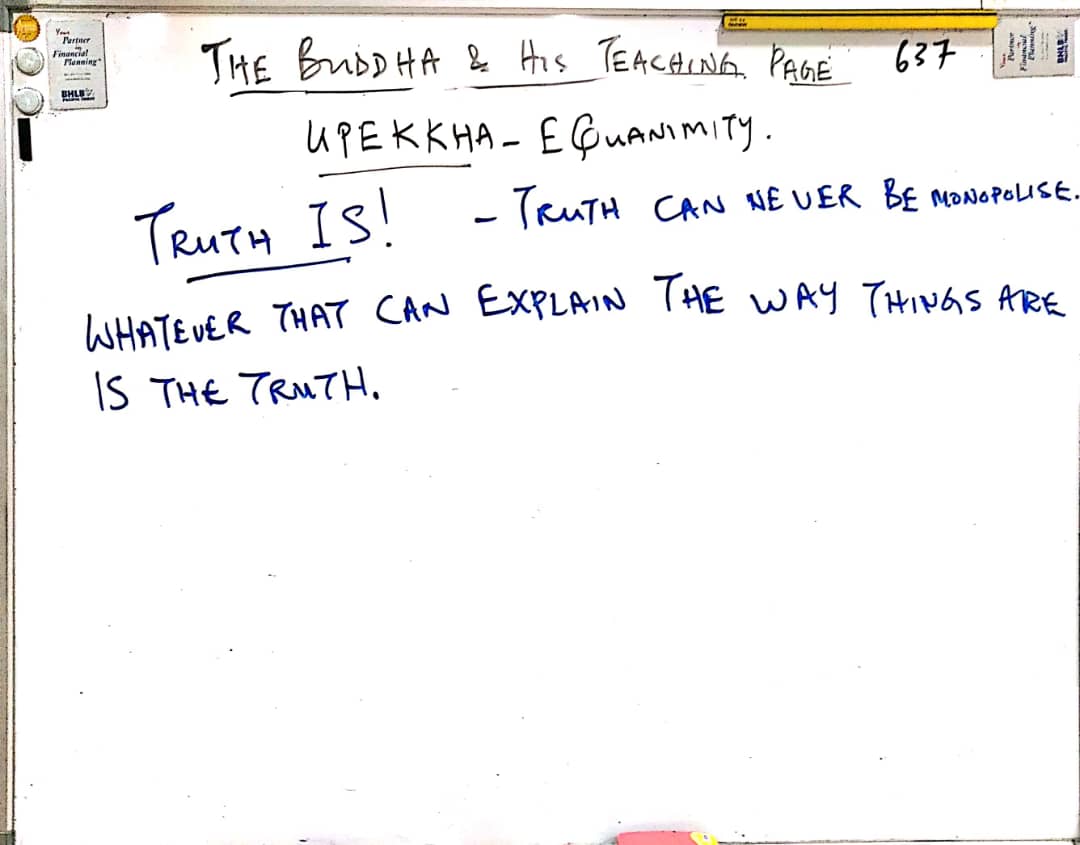 Your
Partner
in
Financial
Planning
BHLB
THE BUDDHA & HIS TEACHING. PAGE 637
UPEKKHA - EQUANIMITY.
TRUTH IS! - TRUTH CAN NEVER BE MONOPOLISE.
WHATEVER THAT CAN EXPLAIN THE WAY THINGS ARE
IS THE TRUTH.
Your
Partner
in
Financial
Planning
BHLB